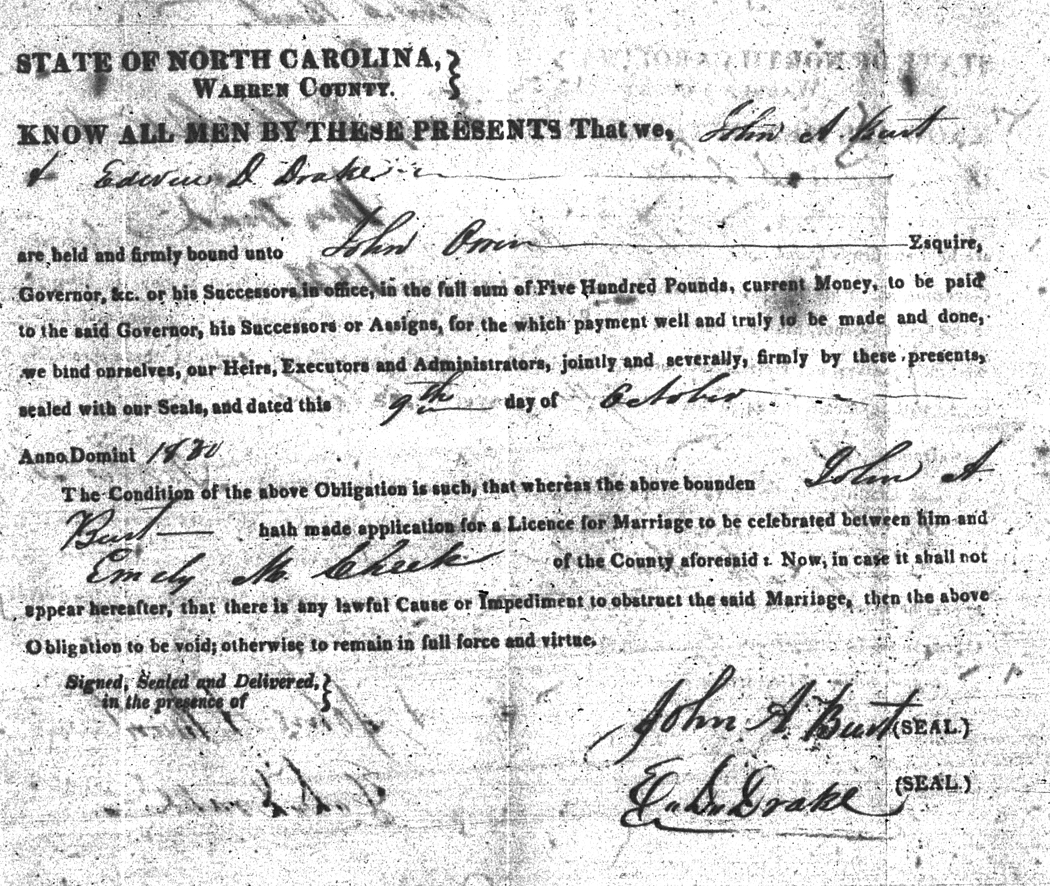 STATE OF NORTH CAROLINA,
WARREN COUNTY.
KNOW ALL MEN BY THESE PRESENTS That we, John A. Burt
& Edwin D Drake
are held and firmly bound unto John Owen Esquire,
Governor, &c. or his Successors in office, in the full sum of Five Hundred Pounds, current Money, to be paid
to the said Governor, his Successors or Assigns, for the which payment well and truly to be made and done,
we bind ourselves, our Heirs, Executors and Administrators, jointly and severally, firmly by these presents,
sealed with our Seals, and dated this 9th day of October
Anno Domini 1830
The Condition of the above Obligation is such, that whereas the above bounden John A
Burt hath made application for a Licence for Marriage to be celebrated between him and
Emely M. Cheek of the County aforesaid: Now, in case it shall not
appear hereafter, that there is any lawful Cause or Impediment to obstruct the said Marriage, then the above
Obligation to be void; otherwise to remain in full force and virtue.
Signed, Sealed and Delivered,
in the presence of
John A. Burt (SEAL.)
E. D. Drake (SEAL.)